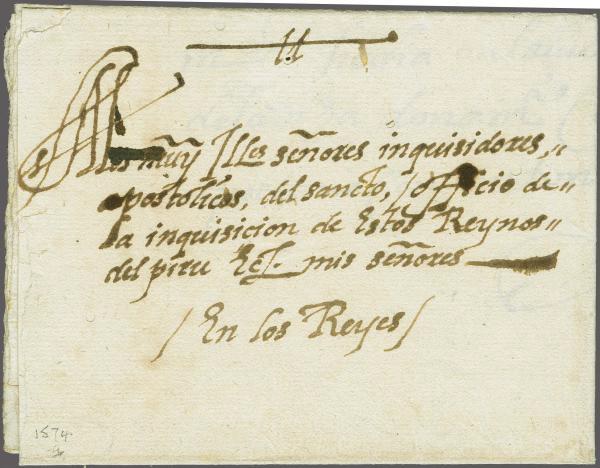 A los muy Illes señores inquisidores,
apostolicos, del sancto, officio de
la inquisicion de estos Reynos
del piru mis señores
/ En los Reyes /
1574